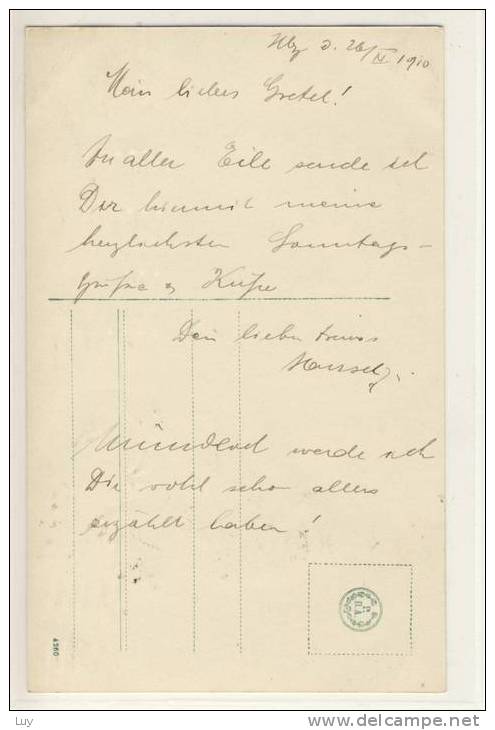 d. 26/IX 1910
Mein liebes Gretel!
In aller Eile sende ich
Dir hiermit meine
herzlichsten Sonntags-
grüße & Küße
Dein lieber treuer
Mündlich werde ich
Dir wohl schon alles
erzählt haben!
4360
Luy
www.delcampe.net